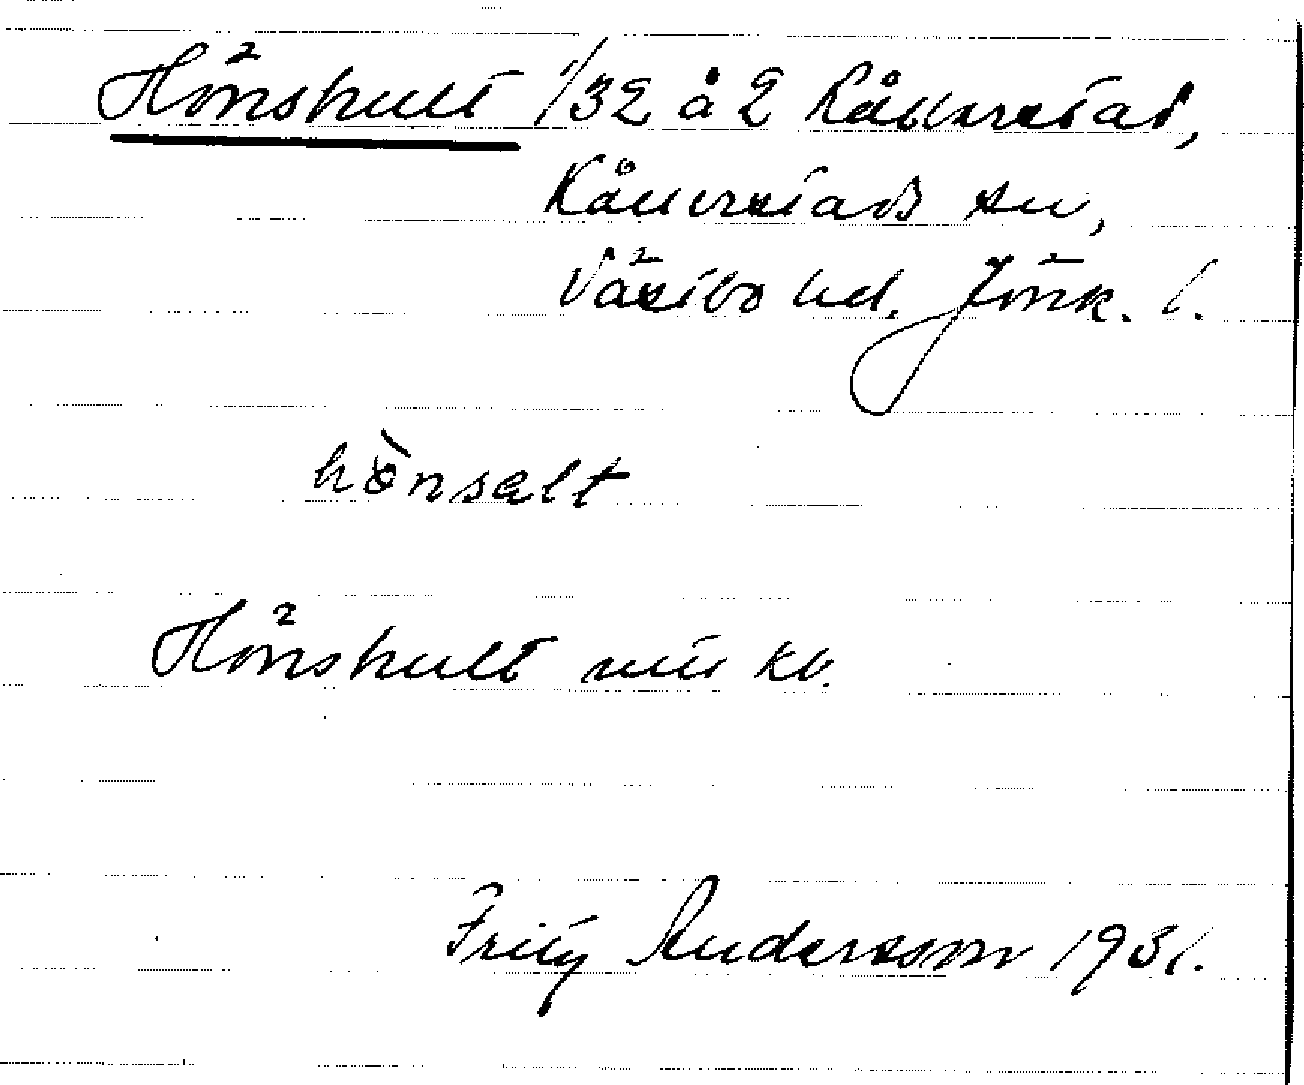 Hönshult 1/32 å 2 Kållerstad,
Kållerstads sn,
Västbo hd. Jönk. l.
hònsalt
Hönshult kv.
Fritz Andersson 1931.